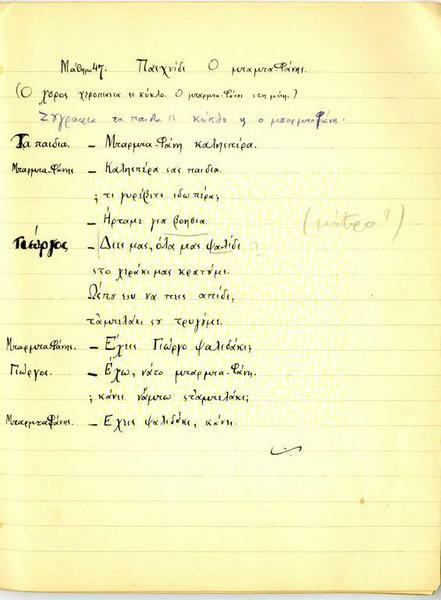 Μάθημα 47. Παιχνίδι Ο μπαμπα-Φάνης.
(Ο χορος χεροπιαστα σε κύκλο. Ο μπαρμπα-Φάνης στη μέση.)
Ζωγραφια τα παιδια σε κύκλο κ ο μπαρμπα Φάνη.
Τα παιδια. – Μπαρμπα Φάνη καλησπέρα.
Μπαρμπα-Φάνης – Καλησπέρα σας παιδια
; τι γυρέβετε εδω πέρα;
– Ήρταμε για βοηθια (μέτρο?)
Γιώργος – Διες μας, όλα μας ψαλίδι
στο χεράκι μας κρατήμε.
Ώσπυ συ να πεις απίδι,
τ'αμπελάκι συ τρυγήμε.
Μπαρμπα-Φάνης. – Έχεις Γιώργο ψαλιδάκι;
Γιώργος. – Έχω, νάτο μπάρμπα-Φάνη.
; κάνει νάμπω στ'αμπελάκι;
ΜπαρμπαΦάνης – Εχεις ψαλιδάκι, κάνει.